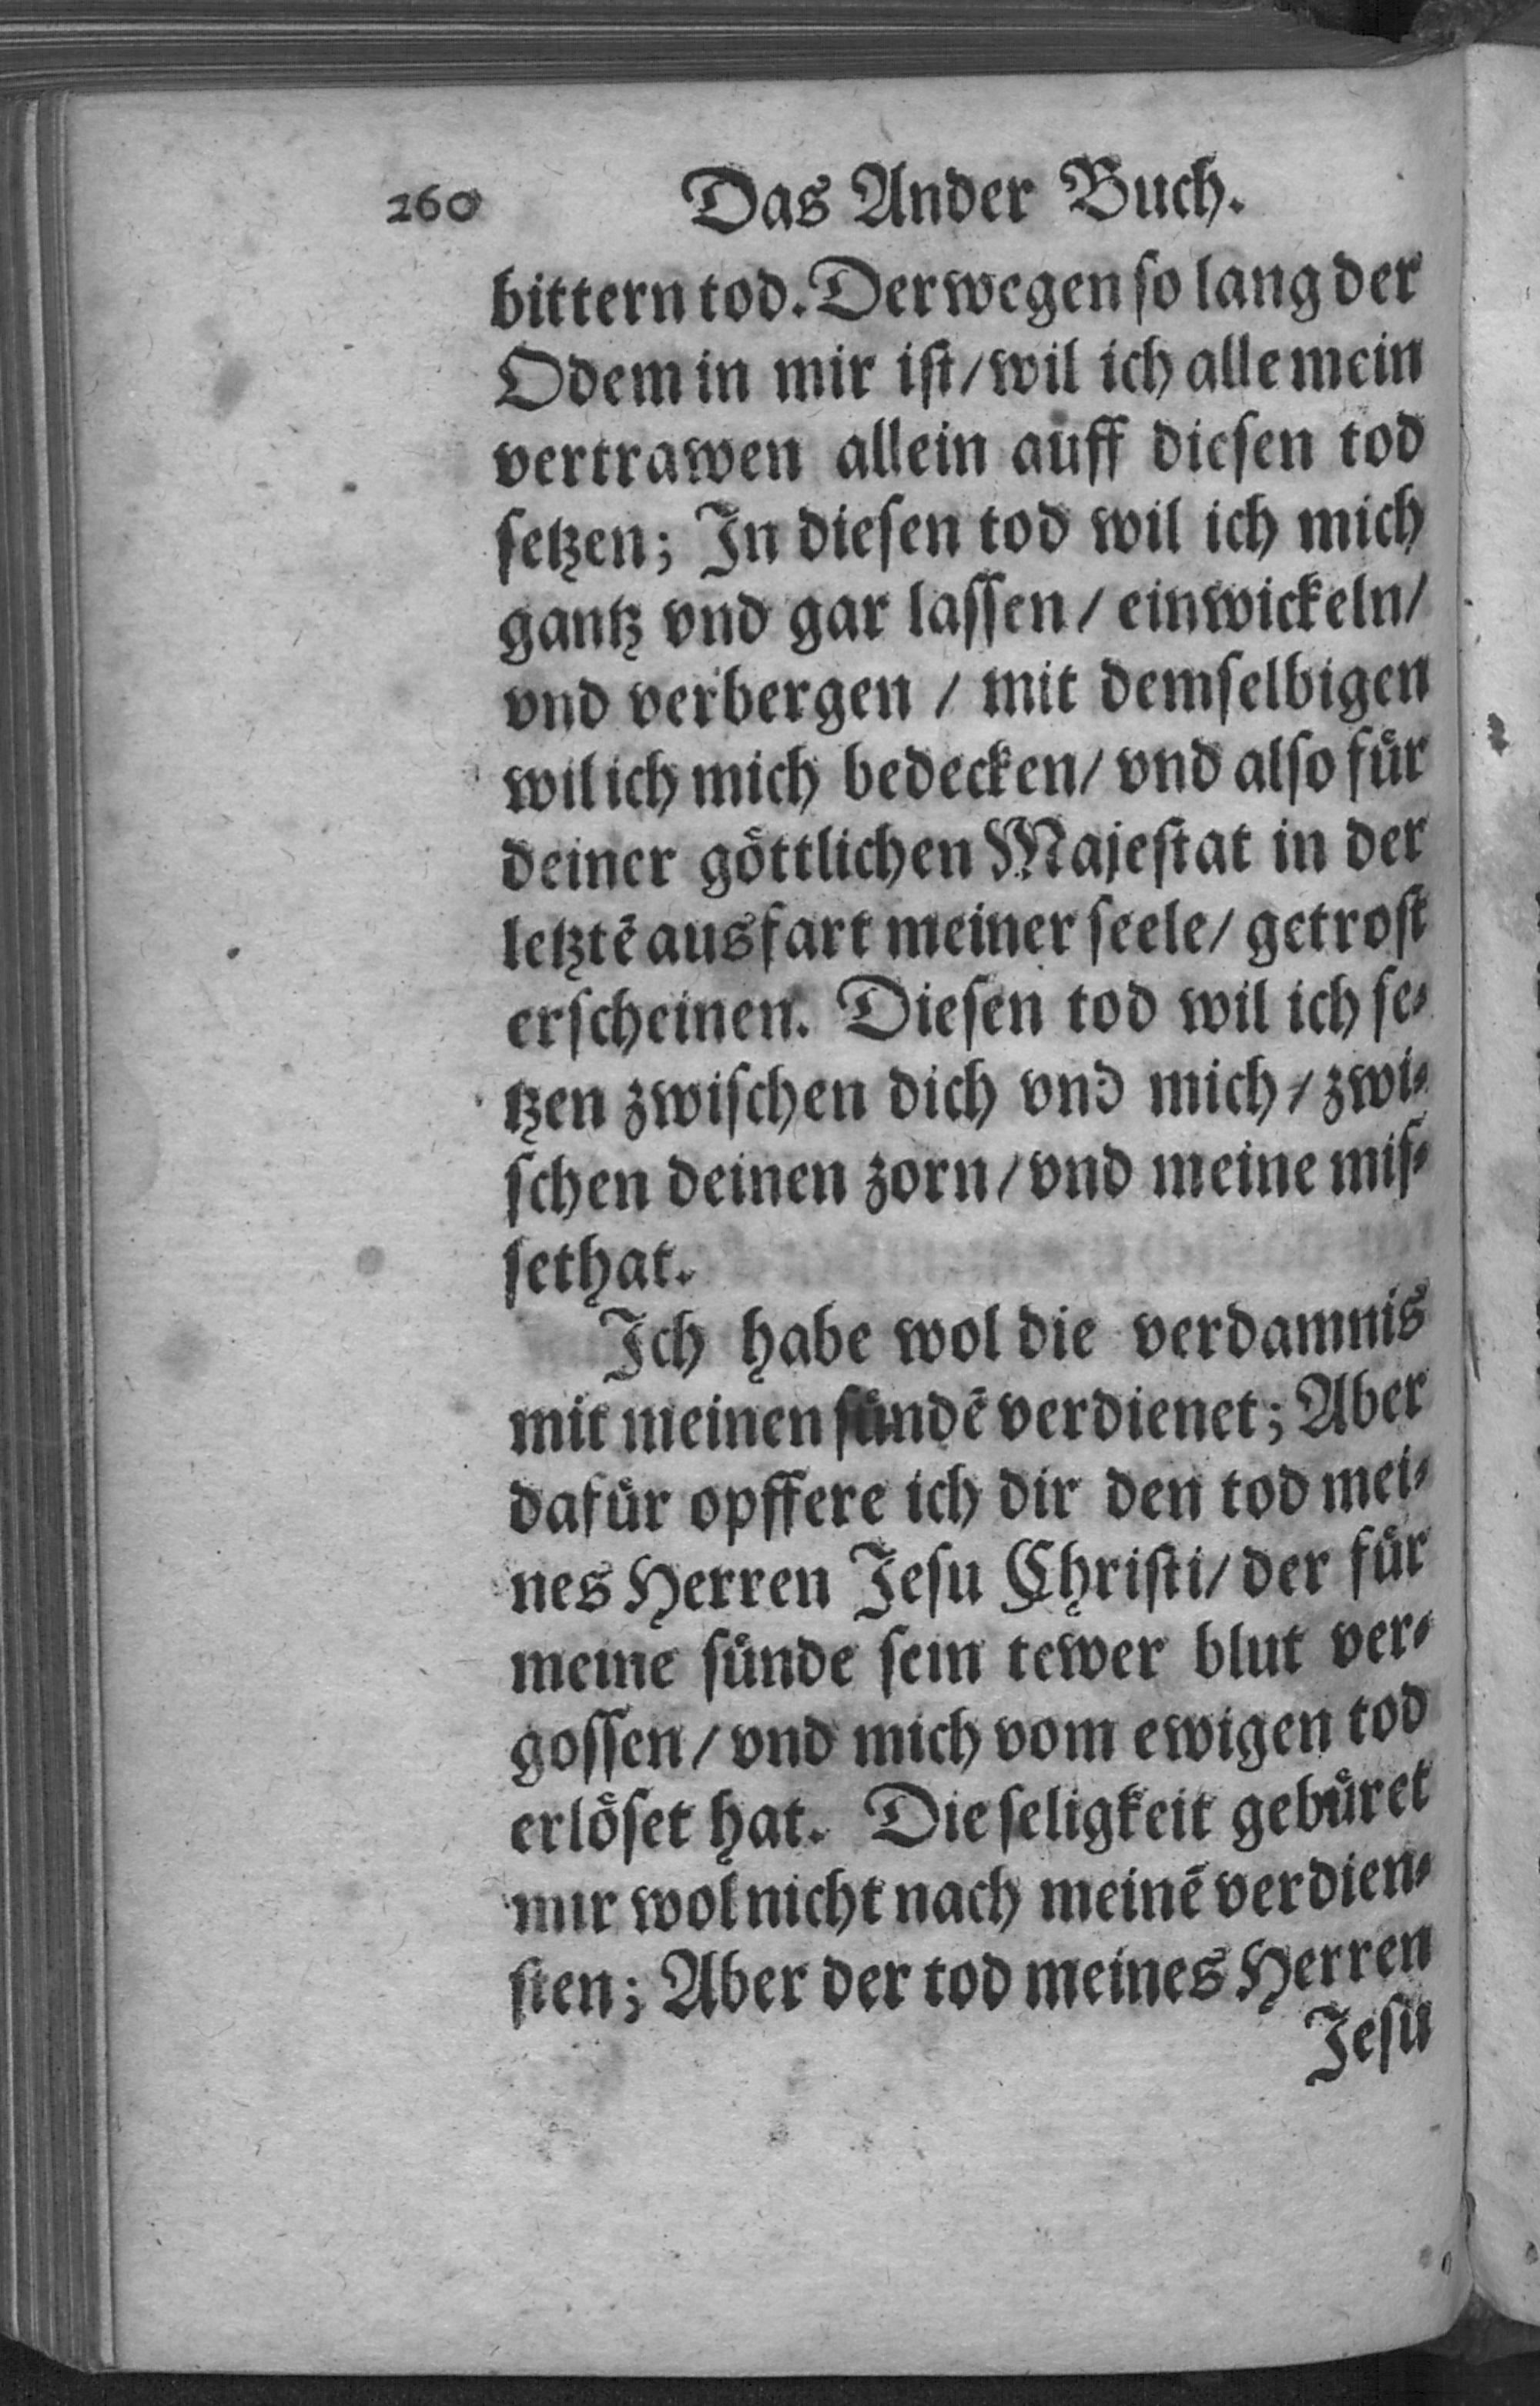 260 Das Ander Buch.
bittern tod. Derwegen so lang der
Odem in mir ist/ wil ich alle mein
vertrawen allein auff diesen tod
setzen; In diesen tod wil ich mich
gantz vnd gar lassen/ einwickeln/
vnd verbergen / mit demselbigen
wil ich mich bedecken/ vnd also fuͤr
deiner goͤttlichen Majestat in der
letztē ausfart meiner seele/ getrost
erscheinen. Diesen tod wil ich se⸗
tzen zwischen dich vnd mich/ zwi⸗
schen deinen zorn/ vnd meine mis⸗
sethat.
Ich habe wol die verdamnis
mit meinen suͤndē verdienet; Aber
dafuͤr opffere ich dir den tod mei⸗
nes Herren Jesu Christi/ der fuͤr
meine suͤnde sein tewer blut ver⸗
gossen/ vnd mich vom ewigen tod
erloͤset hat. Die seligkeit gebuͤret
mir wol nicht nach meinē verdien⸗
sten; Aber der tod meines Herren
Jesu